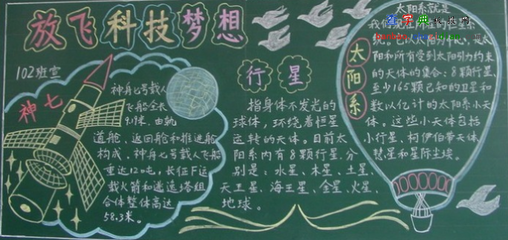 放飞科技梦想
102班宣
神七
神舟七号载人
飞船全长
9.19米，由轨
道舱、返回舱和推进舱
构成，神舟七号载人飞船
重达12吨，长征F运
载火箭和逃逸塔组
合体整体高达
58.3米。
行星
指自身不发光的
球体，环绕着恒星
运转的天体。目前太
阳系内有8颗行星，分
别是：水星、木星、土星、
天王星、海王星、金星、火星、
地球。
太阳系
太阳系就是
阳和所有受到太阳引力约束
的天体的集合：8颗行星、
至少165颗已知的卫星和
数以亿计的太阳系小天
体。这些小天体包括
小行星、柯伊伯带天体、
彗星和星际尘埃。